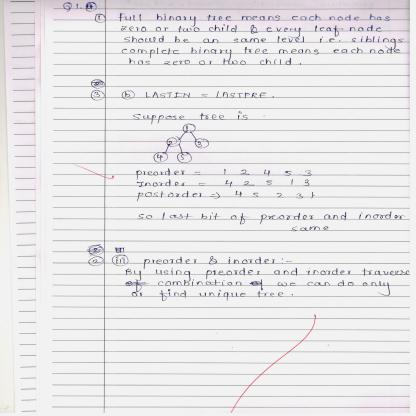 Q 1.
① Full binary tree means each node has
zero or two child & every leaf node
should be an same level i.e. siblings
complete binary tree means each node
has zero or two child.
③ ⓑ LASTIN = LASTPRE.
Suppose tree is
1
2 3
4 5
preorder = 1 2 4 5 3
Inorder = 4 2 5 1 3
postorder => 4 5 2 3 1
so last bit of preorder and inorder
same
ⓐ (iii) preorder & inorder :-
By using preorder and inorder traverse
combination we can do only
or find unique tree.